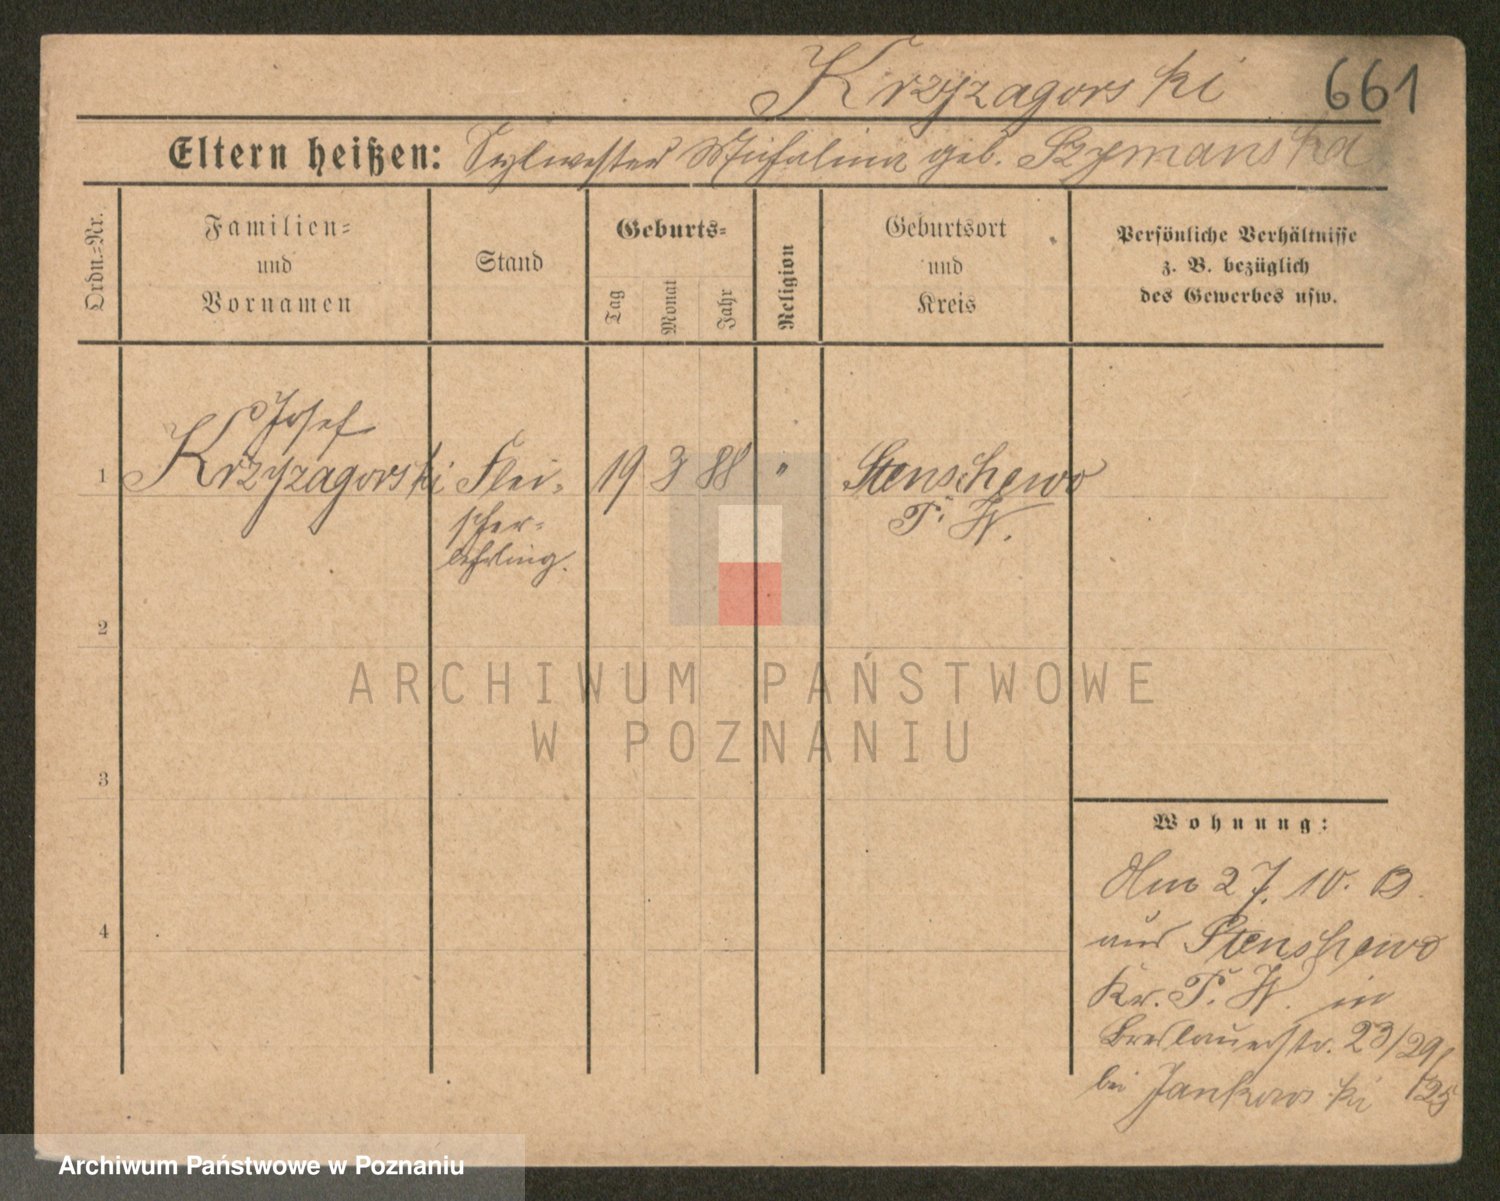 Krzyzagorski 661
Eltern heißen: Sylwester Michalina geb. Szymanska
Ordn.=Nr.
Familien=
und
Vornamen
Stand
Geburts=
Tag
Monat
Jahr
Religion
Geburtsort
und
Kreis
Persönliche Verhältnisse
z. B. bezüglich
des Gewerbes usw.
Josef
1 Krzyzagorski Flei= 19 3 88 " Stenschewo
scher= P. W.
lehrling.
2
ARCHIWUM PAŃSTWOWE
W POZNANIU
3
Wohnung:
Am 27. 10. 03
4
aus Stenschewo
Kr. P. W. in
Breslauerstr. 23/29/
bei Jankowski /25
Archiwum Państwowe w Poznaniu